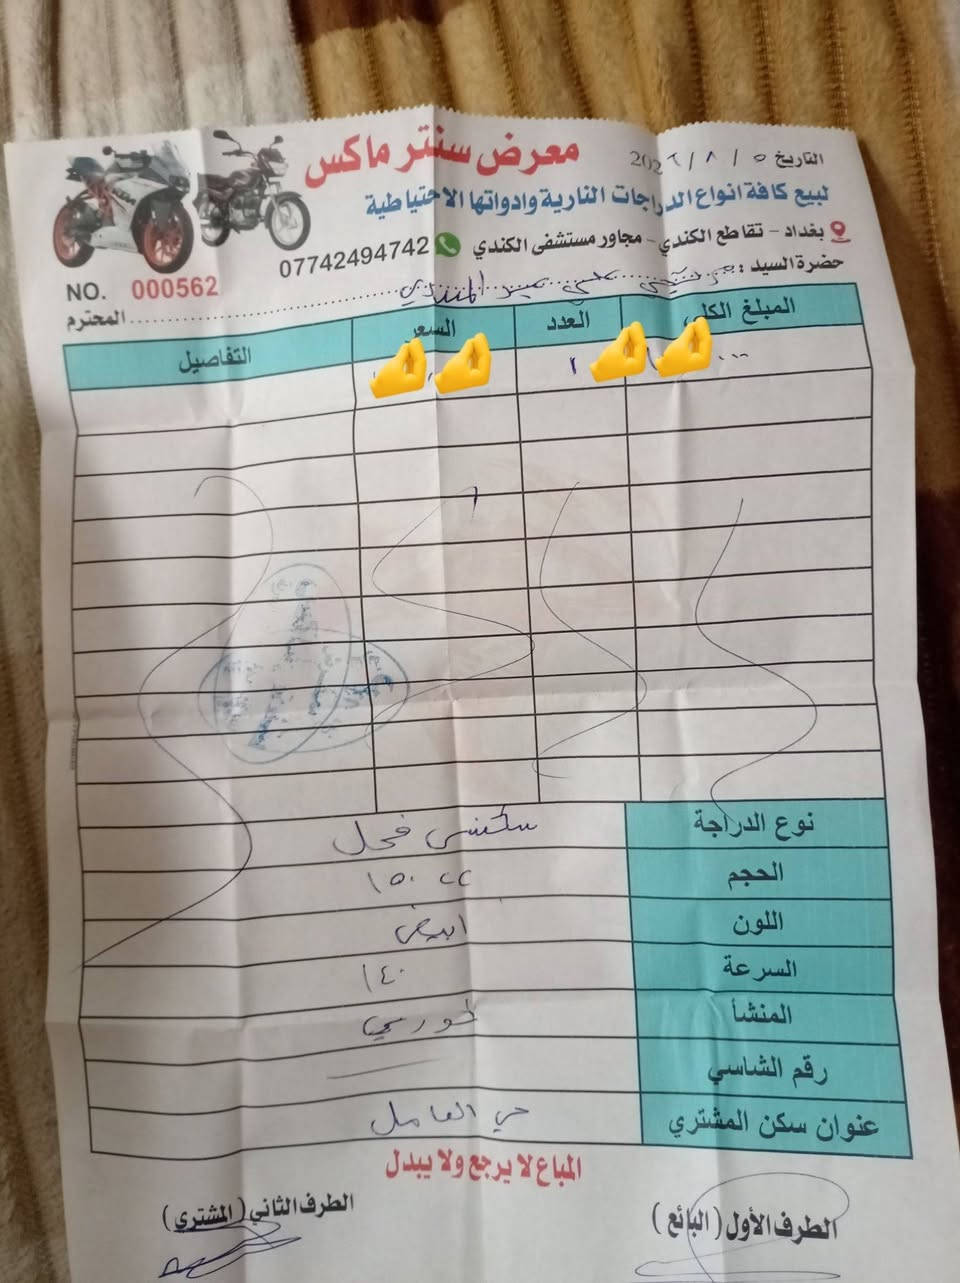 معرض سنتر ماكس
التاريخ ٥ / ٨ / 202٦
لبيع كافة انواع الدراجات النارية وادواتها الاحتياطية
بغداد - تقاطع الكندي - مجاور مستشفى الكندي 07742494742
NO. 000562
حضرة السيد : المحترم
المبلغ الكلي العدد السعر التفاصيل
١
نوع الدراجة سكنسي فحل
الحجم ١٥٠ cc
اللون ابيض
السرعة ١٤٠
المنشأ
رقم الشاسي
عنوان سكن المشتري حي العامل
المباع لا يرجع ولا يبدل
الطرف الأول ( البائع ) الطرف الثاني ( المشتري )